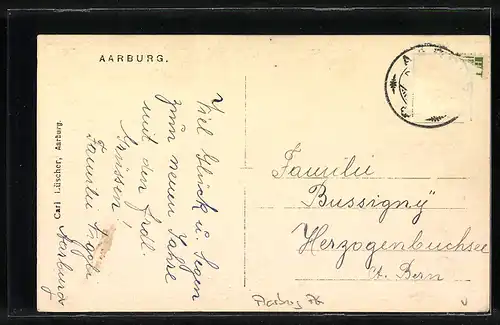 AARBURG.
Carl Lüscher, Aarburg.
Viel Glück u. Segen
zum neuen Jahre
mit den frdl.
Grüssen!
Familie
Aarburg
Familie
Bussigny
Herzogenbuchsee
Ct. Bern
Aarburg AG